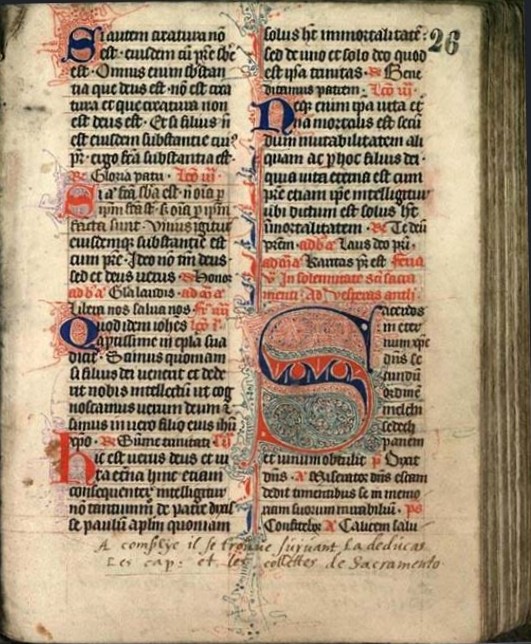 26
Si autem creatura nō
est · eiusdem cū pr̄e sbē
est · Omnis enim sbstan
tia que deus est · nō est crea
tura et que creatura non
est deus est · Et si filius n̄
est eiusdem substantie cui⁹
pr̄ · ergo
substantia est ·
R̄ Gloria patri · Lcō ii
est · n̄ oīa p̄
ipm̄ · si oīa p̄ ipm̄
facta sunt · Unius igitur
eiusdemqȝ substantie est
cum pr̄e · Ideo nō tm̄ deus ·
sed et deus verus · R̄ Honor
ad b̄ā Gl̄a laudis · ad
Libera nos salua nos ·
Quod idem ioh̄es lcō
Aptissime in epl̄a sua
dicit · Scimus quoniam
si filius dei venerit et dede
rit nobis intellectū ut cog
noscamus verum deum ⁊
simus in vero filio eius ih̄u
xp̄o · R̄ Sūme trinitati
hic est verus deus et vi
ta et̄na hinc etiam
consequenter intelligitur
nō tantummō de patre dixis
se paulū apl̄m quoniam
solus h̄t immortalitatē ·
sed de uno et solo deo quod
est ipsa trinitas · R̄ Bene
dicamus patrem · Lcō iii ·
Neqȝ enim ip̄a vita et̄
na mortalis est secū
dum mutabilitatem ali
quam ac p̄ hoc filius dei ·
quia vita et̄na est cum
pr̄e etiam ip̄e intelligitur
ubi dictum est solus h̄t
īmortalitatem · R̄ Te deū
pr̄em · ad b̄ā Laus deo pr̄i ·
Karitas pr̄ est feria
v̄ In solemnitate sc̄i sacra
menti · Ad vesperas anti ·
Sacerdos
in eter
num xp̄c
dn̄s se
cundū
ordinē
melchi
sedech
panem
et vinum obtulit p̄ Dixit
dn̄s · A᷎ Miserator dn̄s escam
dedit timentibus se in memo
riam suorum mirabiliū · ps
Confitebor A᷎ Calicem salu
A complye il se trouue suruant La deducas
Les cap: et les collettes de Sacramento